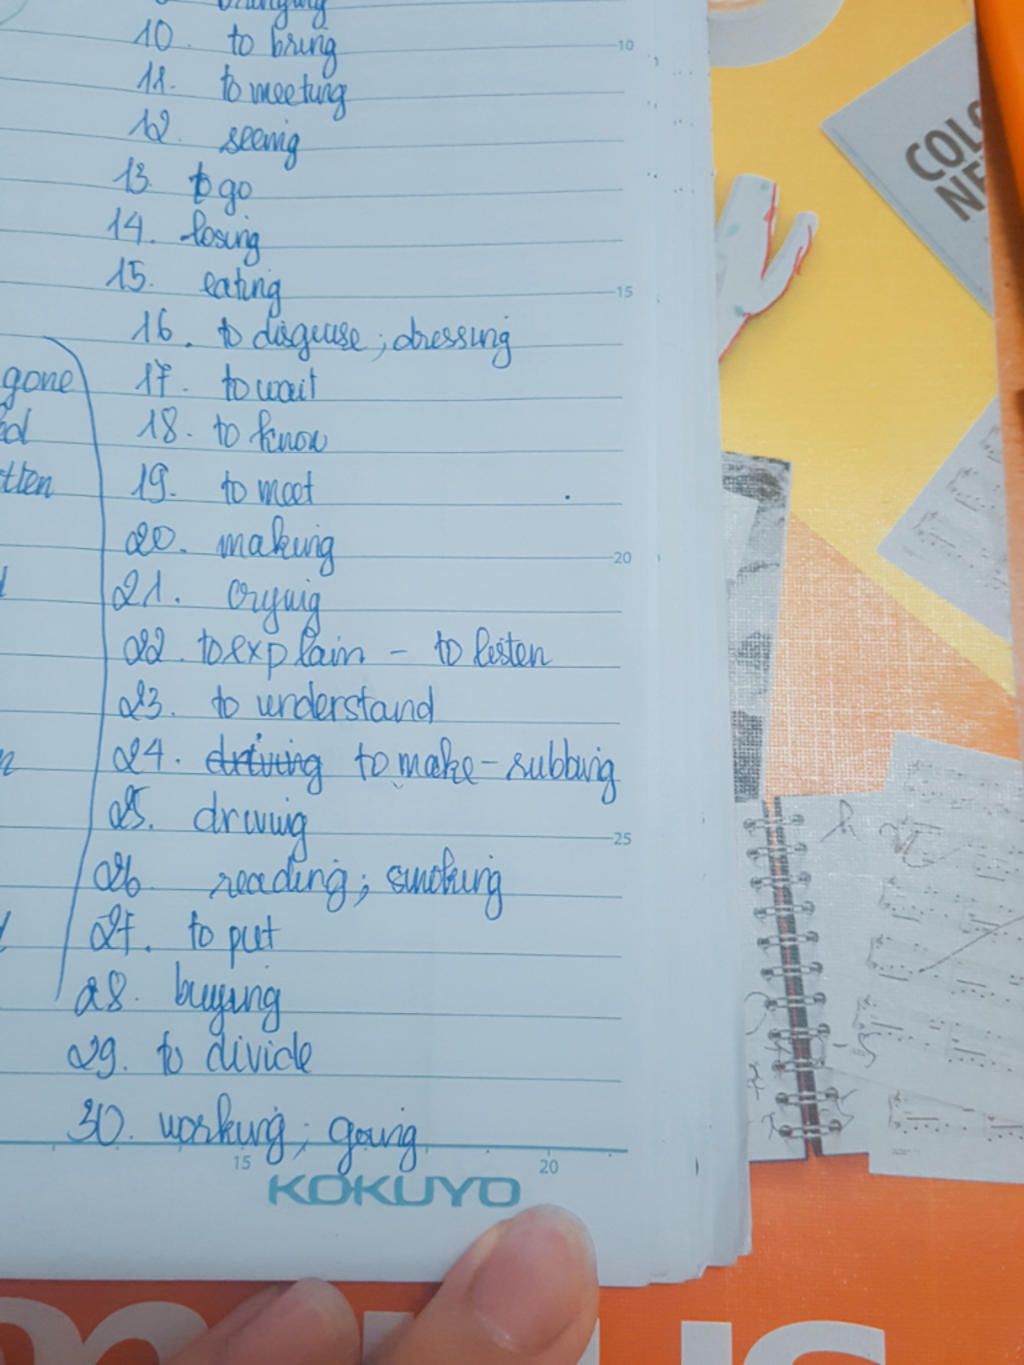 10. to bring
10
11. to meeting
12. seeing
13. to go
14. losing
15. eating
15
16. to disguise; dressing
gone
17. to wait
18. to know
tten
19. to meet
20. making
20
21. crying
22. to explain - to listen
23. to understand
24. driving to make - rubbing
25. driving
25
26. reading; smoking
27. to put
28. buying
29. to divide
30. working; going
15
20
KOKUYO
COLO
NE